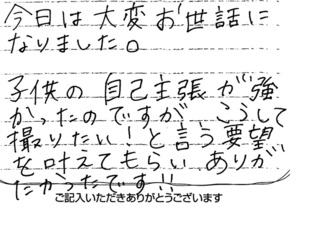 今日は大変お世話に
なりました。
子供の自己主張が強
かったのですが、こうして
撮りたい！と言う要望
を叶えてもらい、ありが
たかったです!!
ご記入いただきありがとうございます